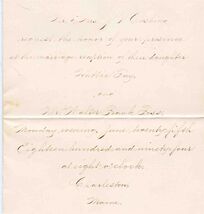 Mr. & Mrs. J. Cushing
request the honor of your presence
at the marriage reception of their daughter
Hattie May,
and
Mr. Walter Frank Foss,
Monday evening, June twenty fifth
Eighteen hundred and ninety four
at eight o'clock.
Charleston,
Maine.